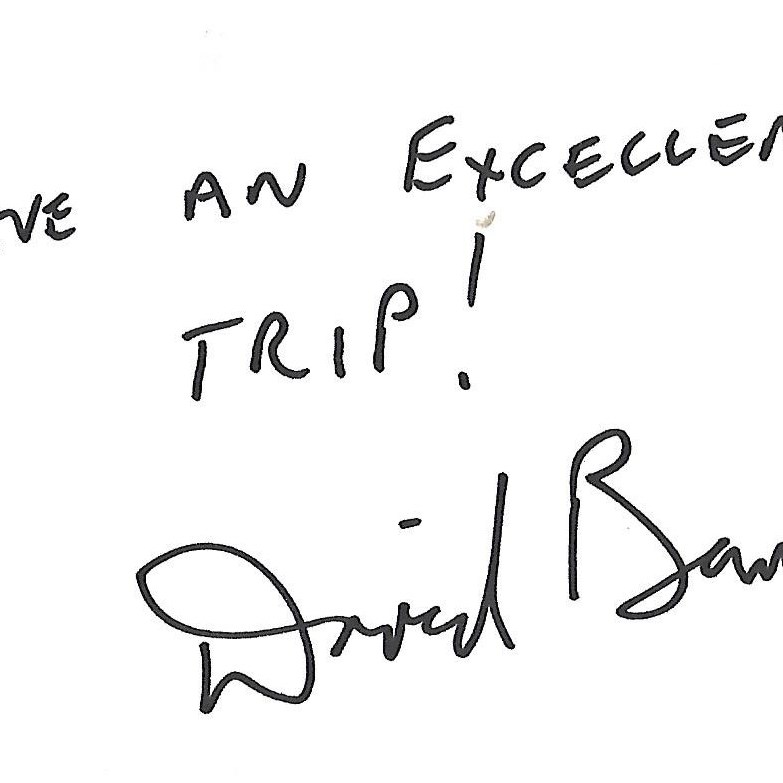 VE AN EXCELLEN
TRIP!
David Ba